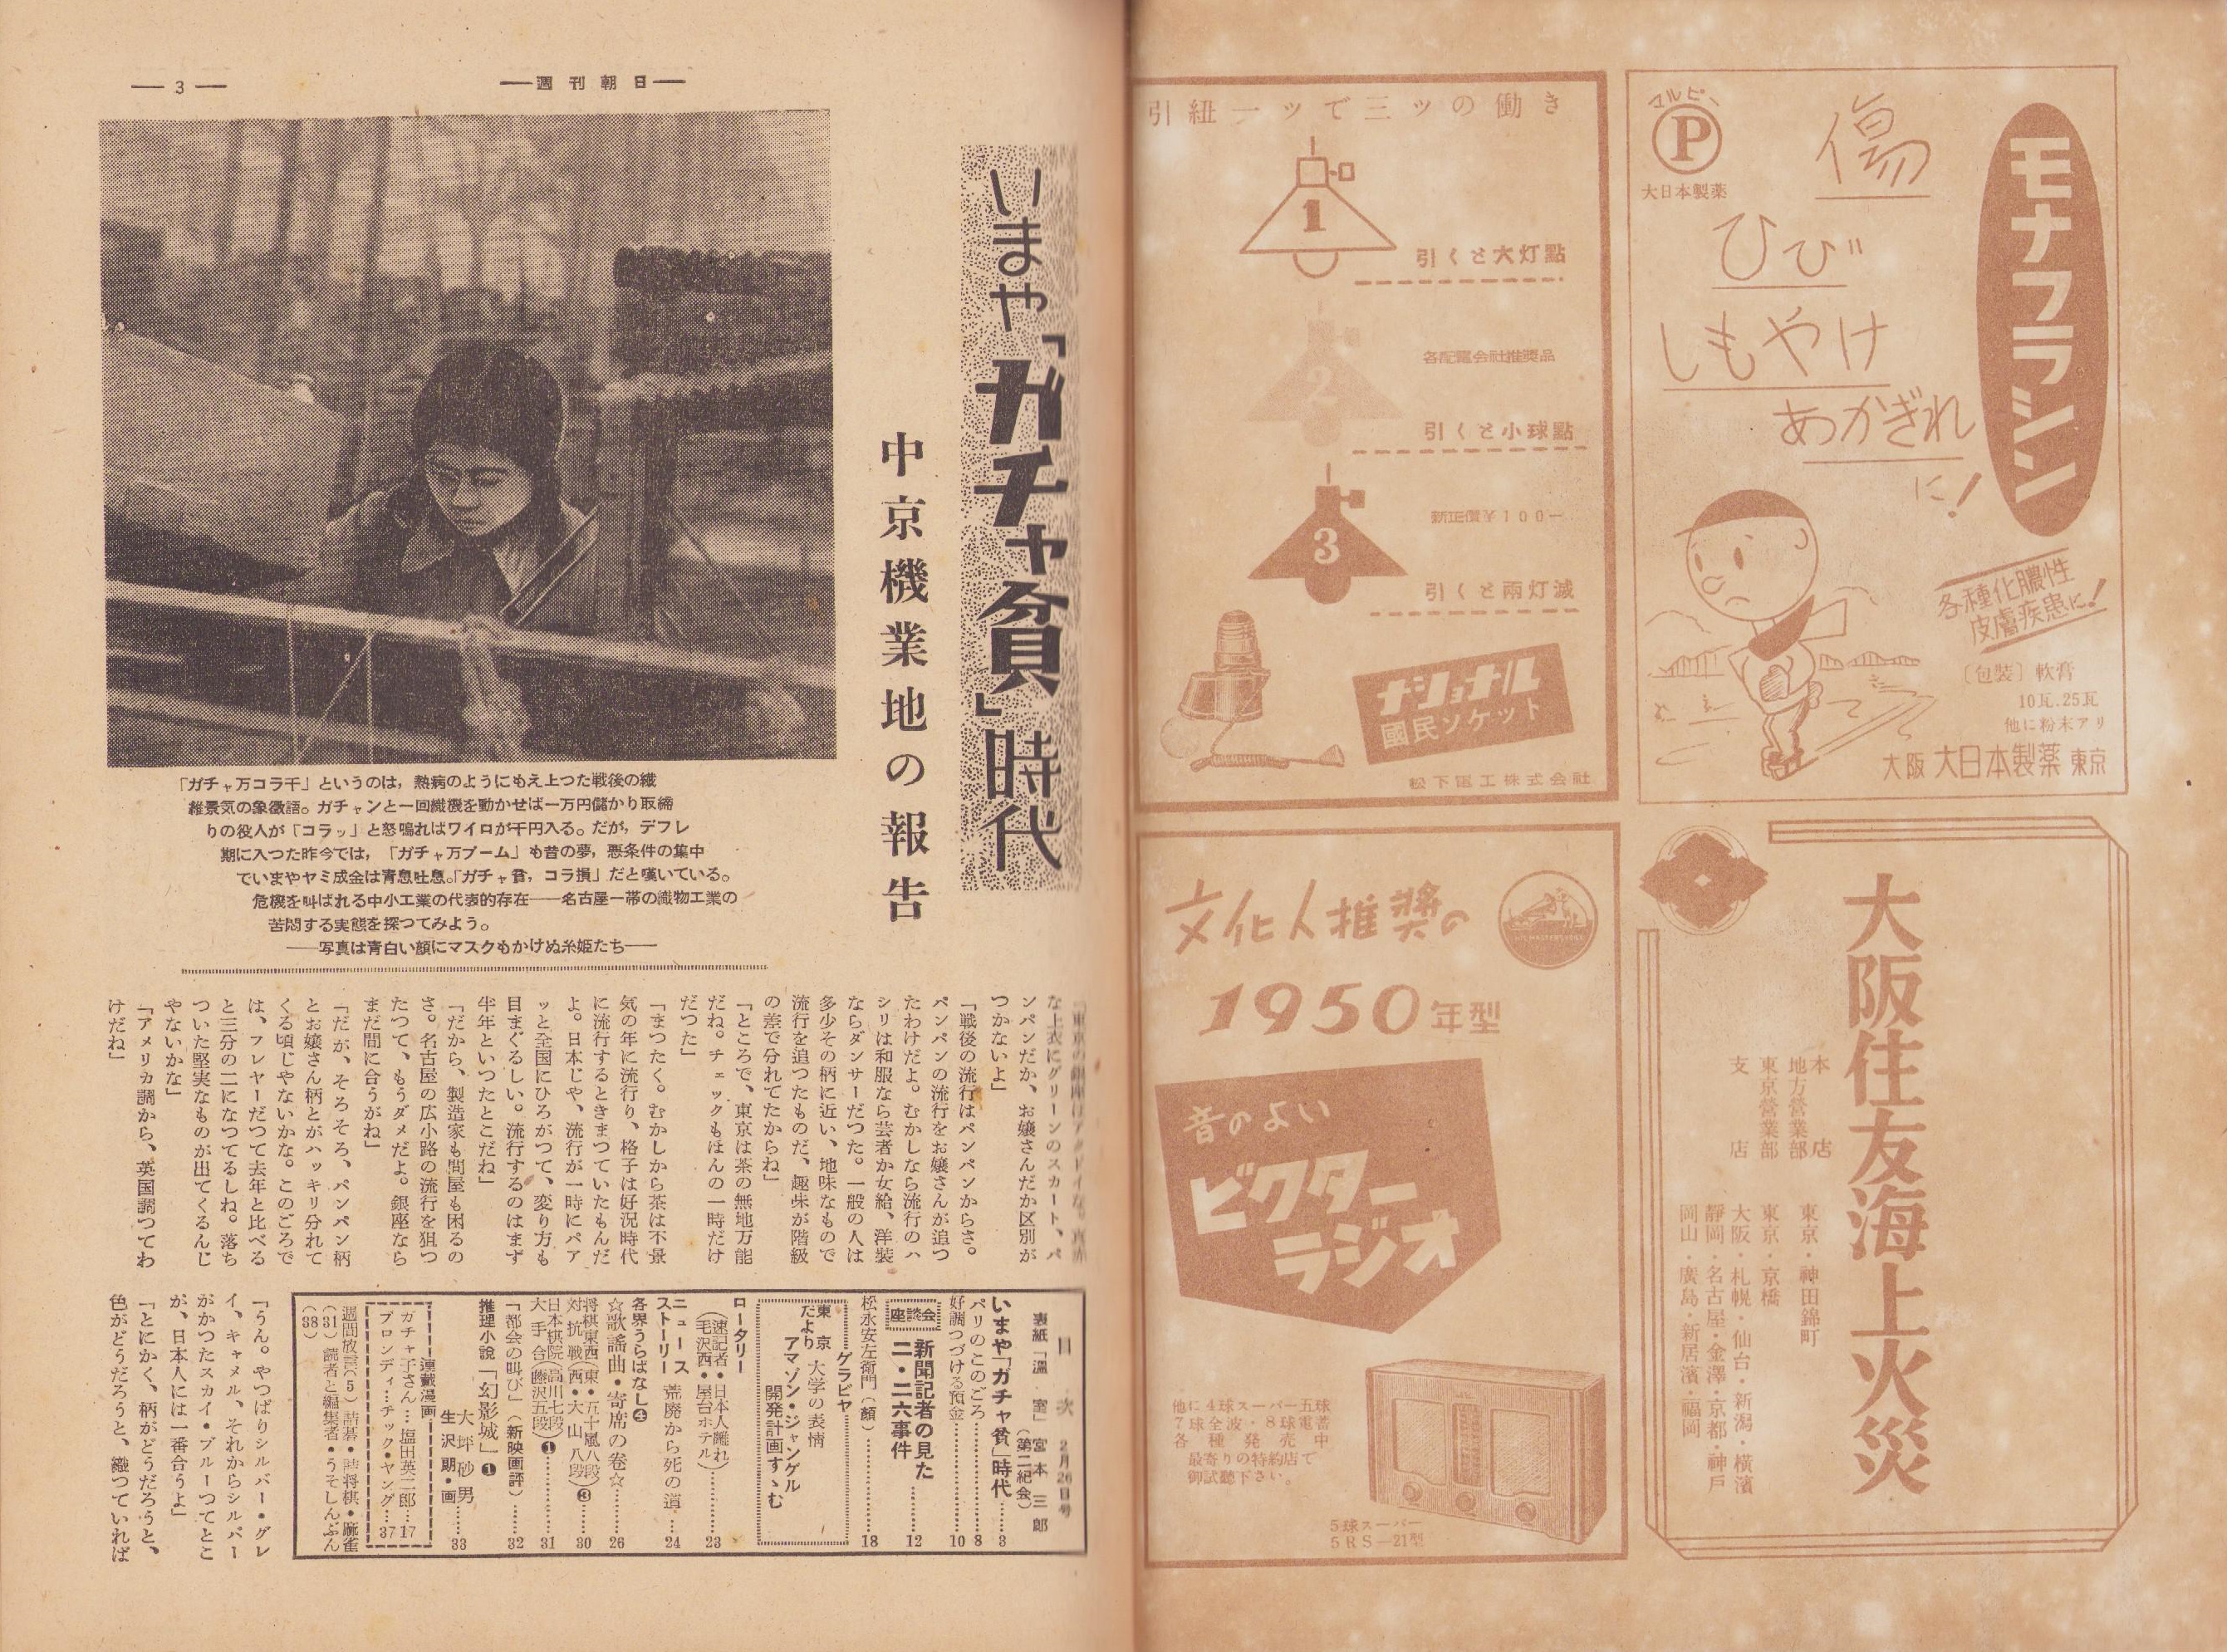 モナフラシン
マルピー
P
大日本製薬
傷
ひび
しもやけ
あかぎれ
に!
各種化膿性
皮膚疾患に!
〔包装〕軟膏
10瓦.25瓦
他に粉末アリ
大阪 大日本製薬 東京
引紐一ッで三ッの働き
1
引くと大灯點
各配電会社推奬品
2
引くと小球點
3
新正價¥100ー
引くと両灯滅
ナショナル
國民ソケット
松下電工株式会社
大阪住友海上火災
本店 東京・神田錦町
地方営業部
東京營業部 東京・京橋
支店 大阪・札幌・仙台・新潟・横濱
靜岡・名古屋・金澤・京都・神戸
岡山・廣島・新居濱・福岡
文化人推奬の
1950年型
音のよい
ビクター
ラジオ
他に4球スーパー五球
7球全波・8球電蓄
各種発売中
最寄りの特約店で
御試聽下さい。
5球スーパー
5RS—21型
—週刊朝日—
— 3 —
いまや「ガチャ貧」時代
中京機業地の報告
「ガチャ万コラ千」というのは，熱病のようにもえ上つた戦後の繊
維景気の象徴語。ガチャンと一回織機を動かせば一万円儲かり取締
りの役人が「コラッ」と怒鳴ればワイロが千円入る。だが，デフレ
期に入つた昨今では，「ガチャ万ブーム」も昔の夢，悪条件の集中
でいまやヤミ成金は青息吐息。「ガチャ貧，コラ損」だと嘆いている。
危機を叫ばれる中小工業の代表的存在——名古屋一帯の織物工業の
苦悶する実態を探つてみよう。
——写真は青白い顔にマスクもかけぬ糸姫たち——
な上衣にグリーンのスカート、パ
ンパンだか、お嬢さんだか区別が
つかないよ」
「戦後の流行はパンパンからさ。
パンパンの流行をお嬢さんが追つ
たわけだよ。むかしなら流行のハ
シリは和服なら芸者か女給、洋裝
ならダンサーだつた。一般の人は
多少その柄に近い、地味なもので
流行を追つたものだ、趣味が階級
の差で分れてたからね」
「ところで、東京は茶の無地万能
だね。チェックもほんの一時だけ
だつた」
「まつたく。むかしから茶は不景
気の年に流行り、格子は好況時代
に流行するときまつていたもんだ
よ。日本じや、流行が一時にパア
ッと全国にひろがつて、変り方も
目まぐるしい。流行するのはまず
半年といつたとこだね」
「だから、製造家も問屋も困るの
さ。名古屋の広小路の流行を狙つ
たつて、もうダメだよ。銀座なら
まだ間に合うがね」
「だが、そろそろ、パンパン柄
とお嬢さん柄とがハッキリ分れて
くる頃じやないかな。このごろで
は、フレヤーだつて去年と比べる
と三分の二になつてるしね。落ち
ついた堅実なものが出てくるんじ
やないかな」
「アメリカ調から、英国調つてわ
けだね」
目次 2月26日号
表紙「温室」宮本三郎
(第二紀会)
いまや「ガチャ貧」時代……3
パリのこのごろ……8
好調つづける預金……10
座談会 新聞記者の見た
二・二六事件……12
松永安左衛門(顔)……18
グラビヤ
東京だより 大学の表情
アマゾン・ジャングル
開発計画すゝむ
ロータリー
(速記者・日本人離れ
毛沢西・屋台ホテル)……23
ニュース
ストーリー 荒廃から死の道……24
各界うらばなし❹
☆歌謡曲・寄席の巻☆……26
将棋東西(東・五十嵐八段)
対抗戦(西・大山八段)❸……30
日本棋院(高川七段)
大手合(藤沢五段)❶……31
「都会の叫び」(新映画評)……32
推理小説「幻影城」❶
大坪砂男
生沢朗・画……33
連載漫画
ガチャ子さん…塩田英二郎…17
ブロンディ…チック・ヤング…37
週間放言(5) 詰碁・詰将棋・麻雀
(31) 読者と編集者・うそしんぶん
(38)
「うん。やつぱりシルバー・グレ
イ、キャメル、それからシルバー
がかつたスカイ・ブルーつてとこ
が、日本人には一番合うよ」
「とにかく、柄がどうだろうと、
色がどうだろうと、織つていれば